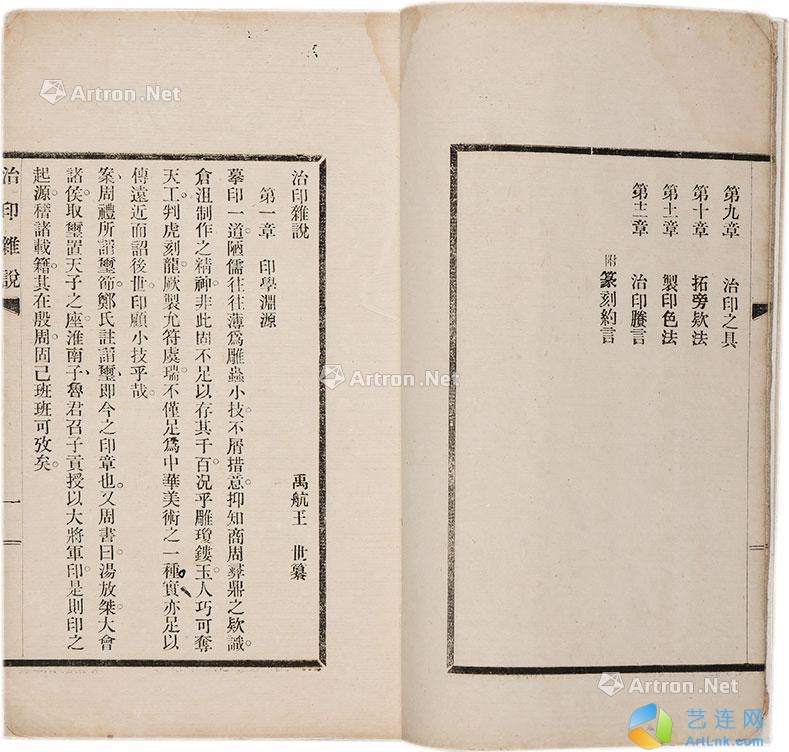 第九章　治印之具
第十章　拓旁欵法
第十一章　製印色法
第十二章　治印賸言
附 篆刻約言
治印雜說
禹航王　世纂
第一章　印學淵源
摹印一道。陋儒往往薄爲雕蟲小技。不屑措意。抑知商周彝鼎之欵識。
倉沮制作之精神。非此固不足以存其千百。况乎雕瓊鏤玉。人巧可奪
天工。判虎刻龍。厥製允符虞瑞。不僅足爲中華美術之一種。實亦足以
傳遠近而詔後世。印顧小技乎哉。
案周禮所謂璽節。鄭氏註謂璽、即今之印章也。又周書曰。湯放桀。大會
諸侯。取璽置天子之座。淮南子、魯君召子貢。授以大將軍印。是則印之
起源。稽諸載籍。其在殷周。固已班班可攷矣。
治印雜說
一
Artron.Net
Artron.Net
Artron.Net
艺连网
ArtLnk.com